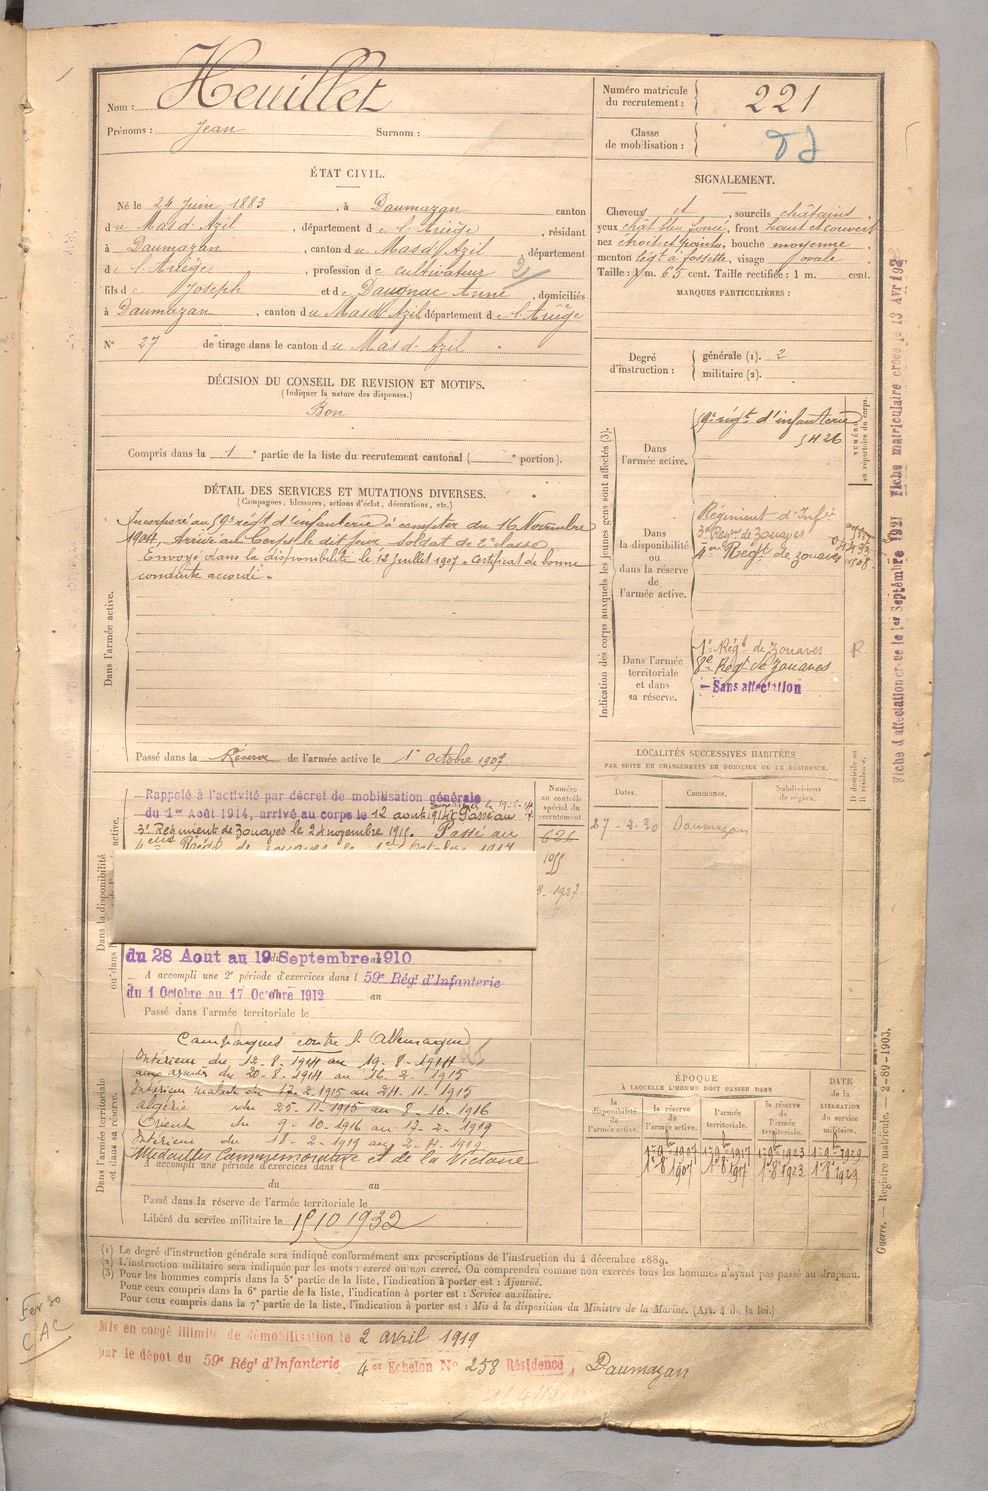 Nom : Heuillet
Prénoms : Jean Surnom :
ÉTAT CIVIL.
Né le 24 Juin 1883, à Daumazan canton
du Mas d'Azil, département de l'Ariège, résidant
à Daumazan, canton du Mas d'Azil département
de l'Ariège, profession de cultivateur
fils de Joseph et de Daugnac Anne, domiciliés
à Daumazan, canton du Mas d'Azil département de l'Ariège
N° 27 de tirage dans le canton du Mas d'Azil
DÉCISION DU CONSEIL DE REVISION ET MOTIFS.
(Indiquer la nature des dispenses.)
Bon
Compris dans la 1e partie de la liste du recrutement cantonal ( e portion).
DÉTAIL DES SERVICES ET MUTATIONS DIVERSES.
(Campagnes, blessures, actions d'éclat, décorations, etc.)
Dans l'armée active.
Incorporé au 59e régt d'infanterie à compter du 16 Novembre
1904. Arrivé au Corps le dit jour soldat de 2e classe
Envoyé dans la disponibilité le 12 juillet 1907. Certificat de bonne
conduite accordé.
Passé dans la Réserve de l'armée active le 1er octobre 1907
Rappelé à l'activité par décret de mobilisation générale
du 1er Août 1914, arrivé au corps le 12 aout 1914 Passé au
3e Régiment de Zouaves le 24 novembre 1915. Passé au
du 28 Aout au 19 Septembre 1910
A accompli une 2e période d'exercices dans l 59e Régt d'Infanterie
du 1 Octobre au 17 Octobre 1912 au
Passé dans l'armée territoriale le
Dans l'armée territoriale et dans sa réserve.
Campagnes contre l'Allemagne
Intérieur du 12-8-1914 au 19-8-1914
aux armées du 20-8-1914 au 16-2-1915
Intérieur malade du 17-2-1915 au 24-11-1915
Algérie du 25-11-1915 au 8-10-1916
Orient du 9-10-1916 au 17-2-1919
Intérieur du 18-2-1919 au
Médailles Commémorative et de la Victoire
A accompli une période d'exercices dans l
du au
Passé dans la réserve de l'armée territoriale le
Libéré du service militaire le 15 10 1932
Numéro au contrôle spécial du recrutement
621
Numéro matricule du recrutement : 221
Classe de mobilisation :
SIGNALEMENT.
Cheveux et, sourcils châtains
yeux chât bleu foncé, front haut et couvert
nez droit et pointu, bouche moyenne
menton légt à fossette, visage ovale
Taille : 1 m. 65 cent. Taille rectifiée : 1 m. cent.
MARQUES PARTICULIÈRES :
Degré d'instruction : générale (1). 2
militaire (2).
Indication des corps auxquels les jeunes gens sont affectés (3).
NUMÉRO au répertoire du corps.
Dans l'armée active.
59e régt d'infanterie
5426
Dans la disponibilité ou dans la réserve de l'armée active.
Régiment d'Infie
3e Régt de Zouaves
4eme Régt de zouaves
Dans l'armée territoriale et dans sa réserve.
1er Régt de Zouaves
8e Régt de Zouaves
Sans affectation
R.
LOCALITÉS SUCCESSIVES HABITÉES
PAR SUITE DE CHANGEMENTS DE DOMICILE OU DE RÉSIDENCE.
Dates. Communes. Subdivisions de région. D domicile ou R résidence.
27-2-30 Daumazan
ÉPOQUE
À LAQUELLE L'HOMME DOIT PASSER DANS
DATE de la LIBÉRATION du service militaire.
la disponibilité de l'armée active. la réserve de l'armée active. l'armée territoriale. la réserve de l'armée territoriale.
1er 8 1907 1er 8 1917 1er 8 1923 1er 8 1929
(1) Le degré d'instruction générale sera indiqué conformément aux prescriptions de l'instruction du 4 décembre 1889.
(2) L'instruction militaire sera indiquée par les mots : exercé ou non exercé. On comprendra comme non exercés tous les hommes n'ayant pas passé au drapeau.
(3) Pour les hommes compris dans la 5e partie de la liste, l'indication à porter est : Ajourné.
Pour ceux compris dans la 6e partie de la liste, l'indication à porter est : Service auxiliaire.
Pour ceux compris dans la 7e partie de la liste, l'indication à porter est : Mis à la disposition du Ministre de la Marine. (Art. 4 de la loi.)
Mis en congé illimité de démobilisation le 2 avril 1919
par le dépôt du 59e Régt d'Infanterie 4e Echelon N° 258 Résidence Daumazan
Fev 30
CAC
Fiche d'affectation créée le 1er Septembre 1921
Guerre. — Registre matricule. — 2-89-1903.